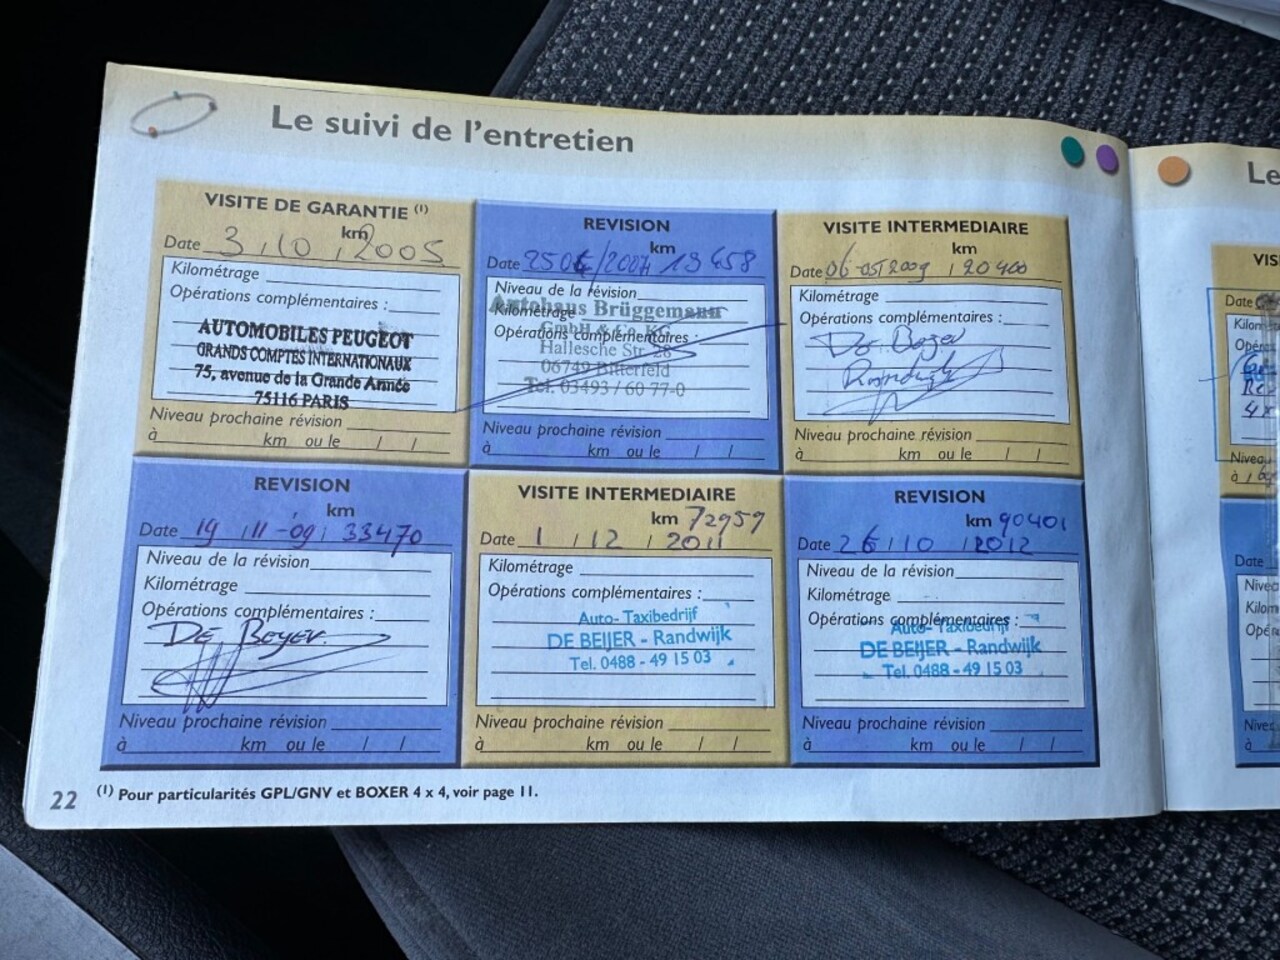 Le suivi de l'entretien
VISITE DE GARANTIE (1)
km
Date 3 / 10 / 2005
Kilométrage
Opérations complémentaires :
AUTOMOBILES PEUGEOT
GRANDS COMPTES INTERNATIONAUX
75, avenue de la Grande Armée
75116 PARIS
Niveau prochaine révision
à km ou le / /
REVISION
km
Date 2504/2007 19 458
Niveau de la révision
Kilométrage
Opérations complémentaires :
Autohaus Brüggemann
GmbH & Co. KG
Hallesche Str. 28
06749 Bitterfeld
Tel. 03493 / 60 77-0
Niveau prochaine révision
à km ou le / /
VISITE INTERMEDIAIRE
km
Date 06-05/2009 / 20400
Kilométrage
Opérations complémentaires :
De Beyer
Niveau prochaine révision
à km ou le / /
REVISION
km
Date 19 / 11 - 09 / 33470
Niveau de la révision
Kilométrage
Opérations complémentaires :
De Beyer
Niveau prochaine révision
à km ou le / /
VISITE INTERMEDIAIRE
km 72959
Date 1 / 12 / 2011
Kilométrage
Opérations complémentaires :
Auto-Taxibedrijf
DE BEIJER - Randwijk
Tel. 0488 - 49 15 03
Niveau prochaine révision
à km ou le / /
REVISION
km 90401
Date 26 / 10 / 2012
Niveau de la révision
Kilométrage
Opérations complémentaires :
Auto-Taxibedrijf
DE BEIJER - Randwijk
Tel. 0488 - 49 15 03
Niveau prochaine révision
à km ou le / /
22 (1) Pour particularités GPL/GNV et BOXER 4 x 4, voir page 11.
Le
VIS
Date
Kilom
Opéra
4x
Niveau
à
Date
Nivea
Kilom
Opé
Nive
à